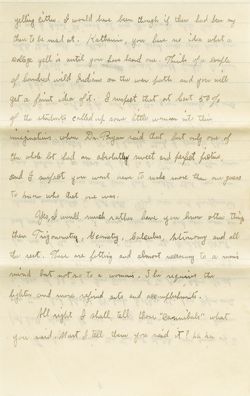 yelling either. I would have been though if they had been any
there to be mad at. Katharine, you have no idea what a
college yell is until you have heard one. Think of a couple
of hundred wild Indians on the war path and you will
get a faint idea of it. I suspect that at least 50%
of the students called up some little woman in their
imagination when Dr. Bryan said that, but only one of
the whole lot had an absolutely sweet and perfect
and I suspect you wont have to make more than one guess
to know who that one was.
Yes, I would much rather have you know other things
than Trigonometry, Geometry, Calculus, Astronomy and all
the rest. These are fitting and almost necessary to a mans
mind but not so to a woman. She requires the
lighter and more refined arts and accomplishments.
All right I shall tell those "cannibals" what
you said. Must I tell them you said it? ha ha